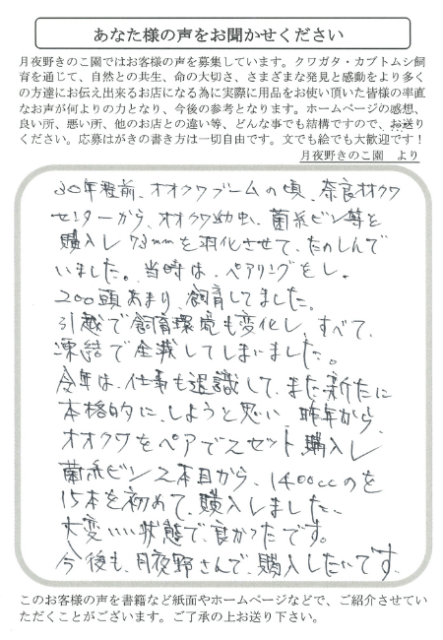 あなた様の声をお聞かせください
月夜野きのこ園ではお客様の声を募集しています。クワガタ・カブトムシ飼
育を通じて、自然との共生、命の大切さ、さまざまな発見と感動をより多く
の方達にお伝え出来るお店になる為に実際に用品をお使い頂いた皆様の率直
なお声が何よりの力となり、今後の参考となります。ホームページの感想、
良い所、悪い所、他のお店との違い等、どんな事でも結構ですので、お送り
ください。応募はがきの書き方は一切自由です。文でも絵でも大歓迎です！
月夜野きのこ園　より
30年程前、オオクワブームの頃、奈良オオクワ
センターから、オオクワ幼虫、菌糸ビン等を
購入し73mmを羽化させて、たのしんで
いました。当時は、ペアリングをし、
200頭あまり、飼育してました。
引越で飼育環境も変化し、すべて、
凍結で全滅してしまいました。
今年は、仕事も退識して、また新たに
本格的に、しようと思い、昨年から、
オオクワをペアで2セット、購入し
菌糸ビン2本目から、1400ccのを
15本を初めて、購入しました、
大変いい状態で、良かったです。
今後も、月夜野さんで、購入したいです。
このお客様の声を書籍など紙面やホームページなどで、ご紹介させてい
ただくことがございます。ご了承の上お送り下さい。